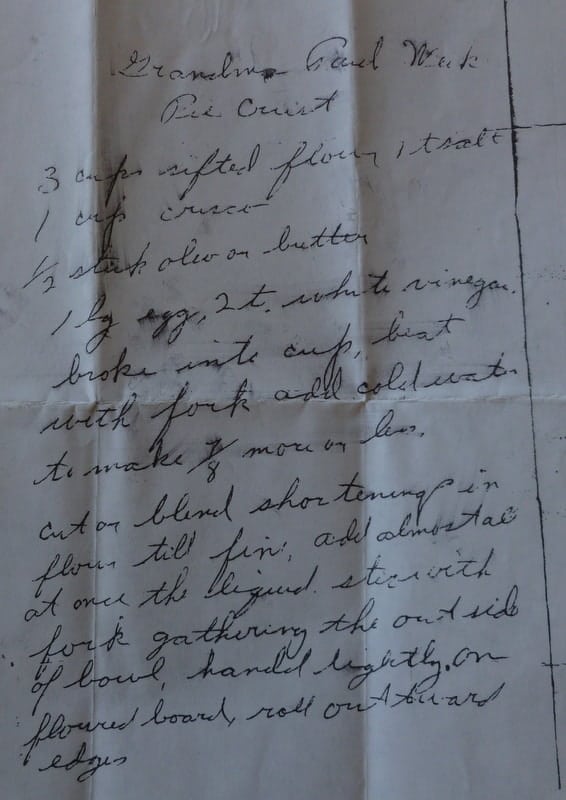 Grandma
Pie Crust
3 cups sifted flour, 1 t salt
1 cup crisco
1/2 stick oleo or butter
1 lg egg, 2 t. white vinegar.
broke into cup, beat
with fork add cold water
to make 7/8 more or less.
cut or blend shortening in
flour till fine, add almost all
at once the liquid. stir with
fork gathering the out side
of bowl, handle lightly. on
floured board, roll out toward
edges